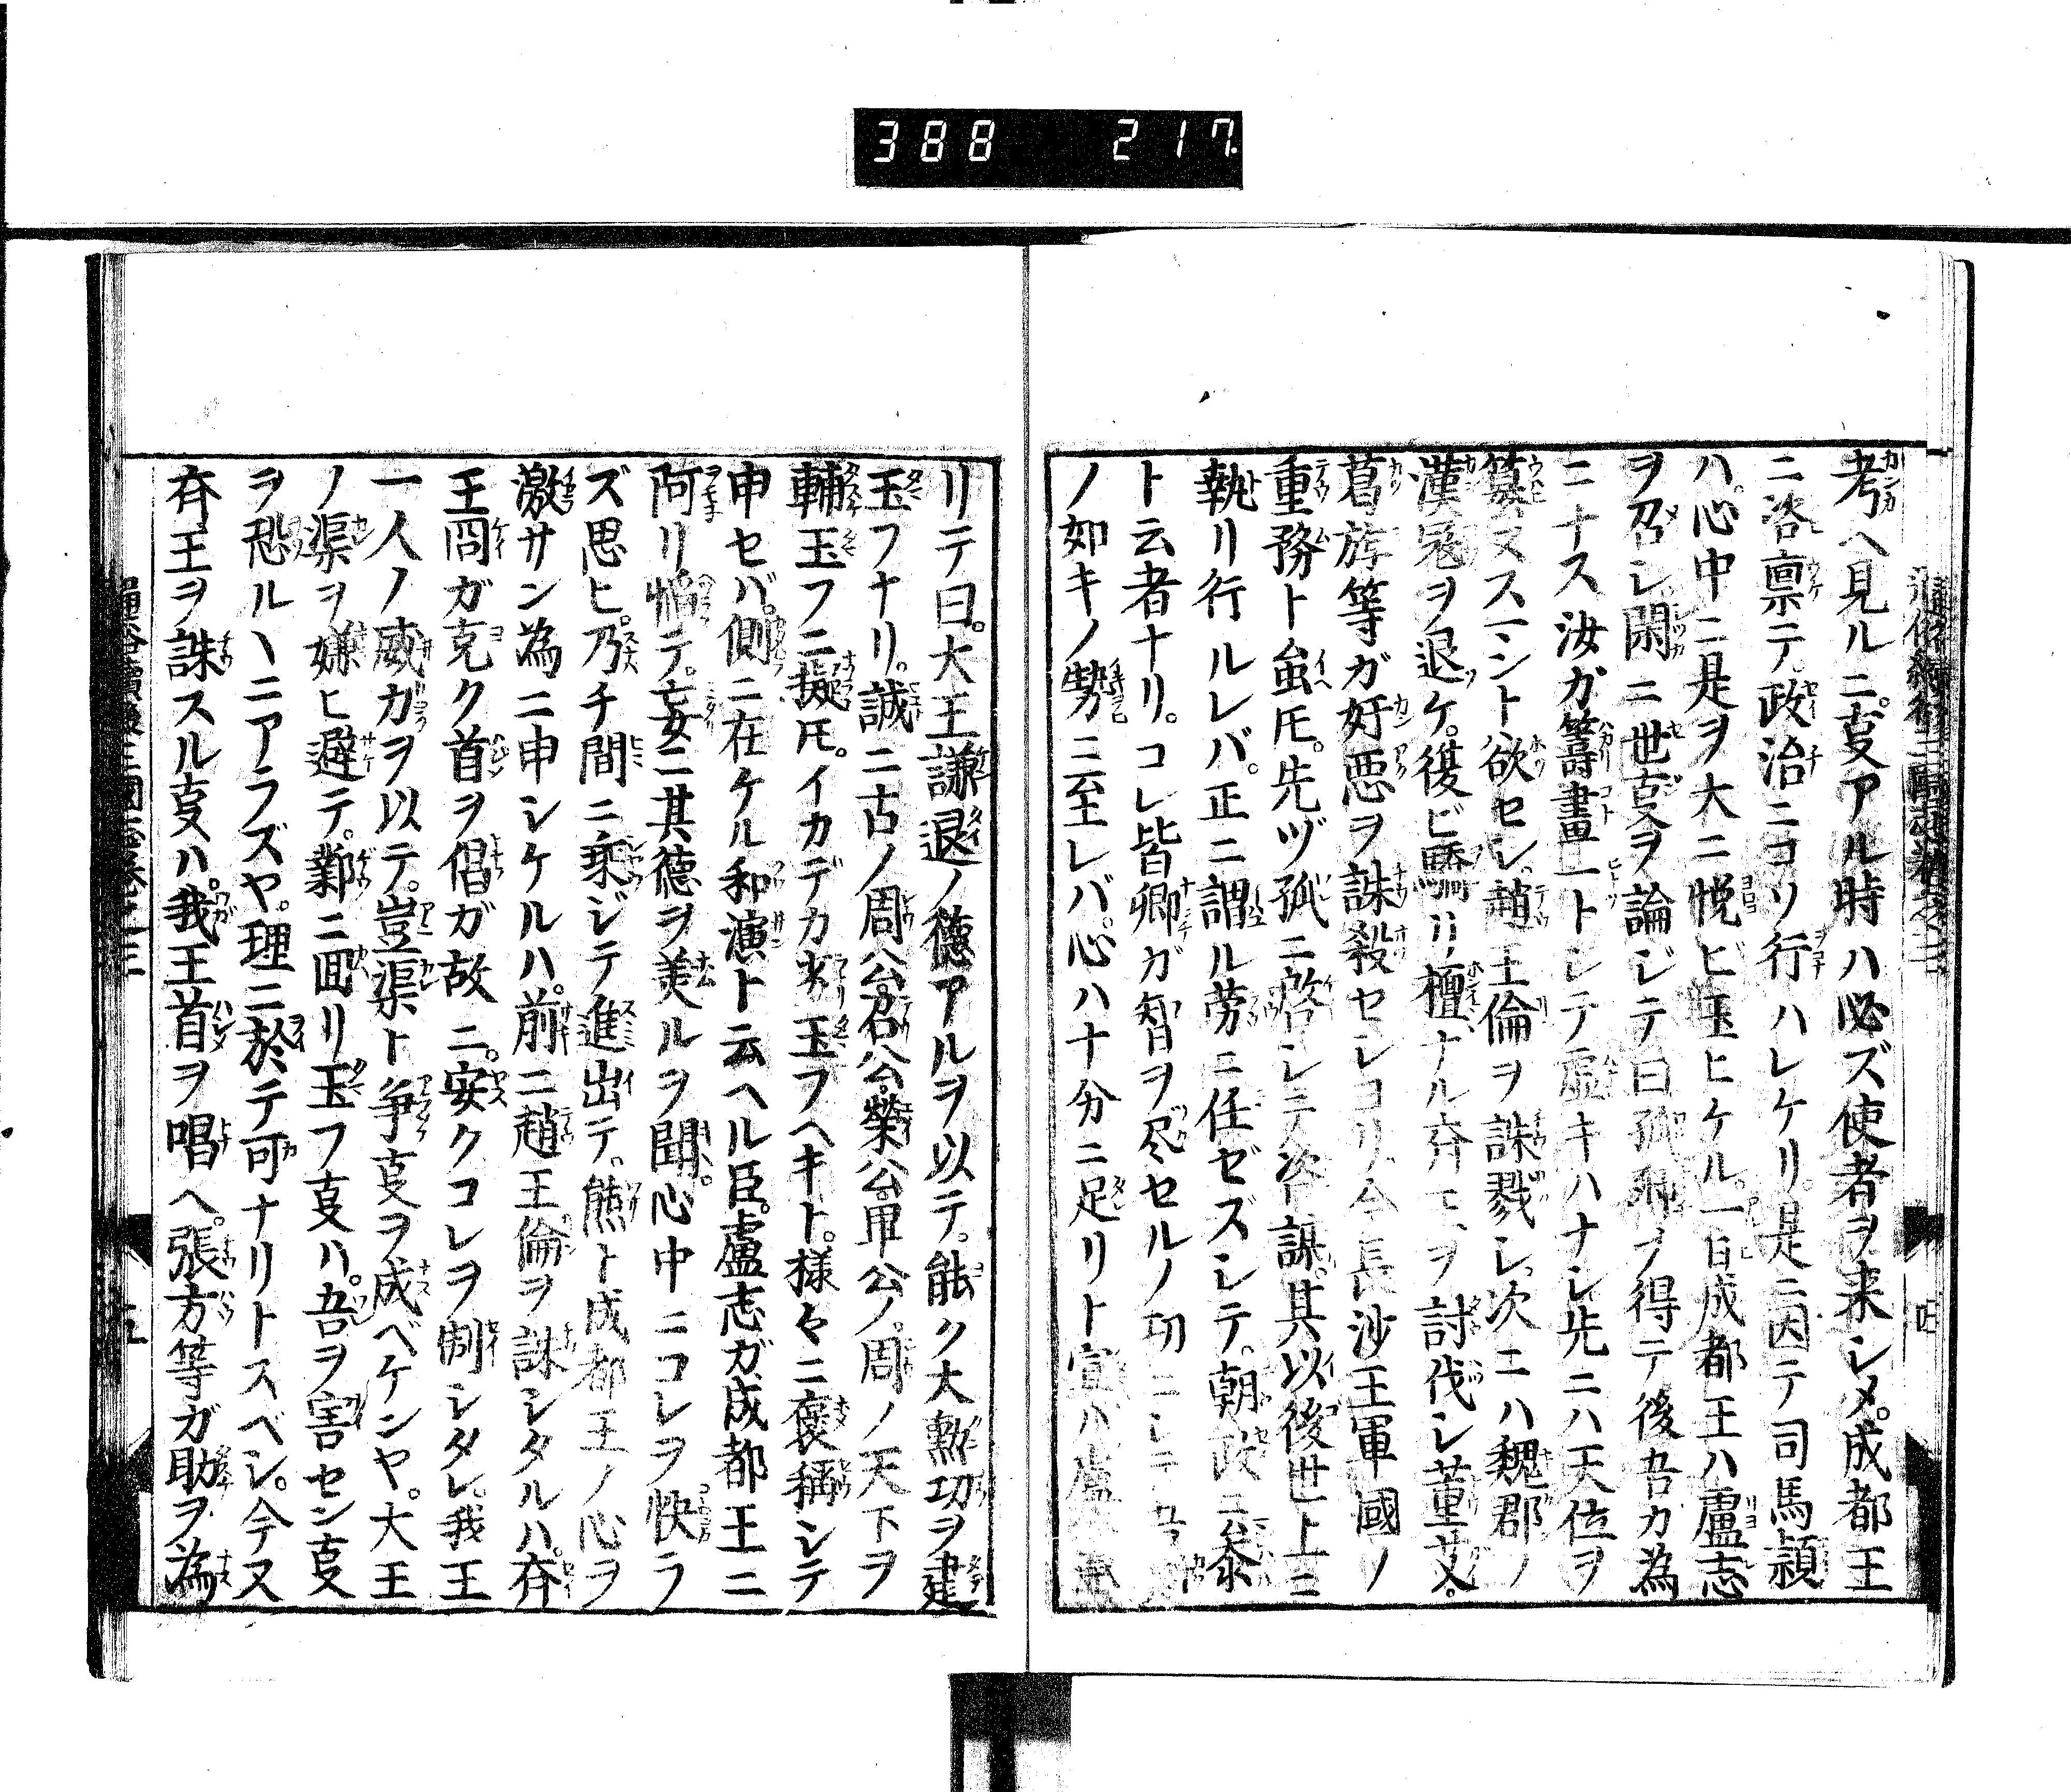 388 217
考ヘ見ルニ。㕝アル時ハ必ズ使者ヲ来シメ。成都王
ニ咨稟テ。政治ニコソ行ハレケリ。是ニ因テ司馬頴
ハ。心中ニ是ヲ大ニ悦ビ玉ヒケル。一日成都王ハ盧志
ヲ召シ閑ニ世㕝ヲ論ジテ曰孤卿ヲ得テ後吾カ為
ニナス汝ガ籌畫一トシテ虚キハナシ先ニハ天位ヲ
簒ヌスシト欲セシ趙王倫ヲ誅戮シ。次ニハ魏郡ノ
漢冦ヲ退ケ。復ビ驕リ擅ナル齊王ヲ討伐シ董艾。
葛旟等ガ奸惡ヲ誅殺セシコリ。今長沙王軍國ノ
重務ト虽𪜈。先ヅ孤ニ啓シテ咨謀。其以後世上ニ
執リ行ルレバ。正ニ謂ル労ニ任ゼズシテ。朝政ニ叅
ト云者ナリ。コレ皆卿ガ智ヲ尽セルノ功ニシテ
ノ如キノ勢ニ至レバ。心ハ十分ニ足リト宣ハ盧
リテ曰。大王謙退ノ德アルヲ以テ。能ク大勲功ヲ建
玉フナリ。誠ニ古ノ周公召公榮公單公ノ。周ノ天下ヲ
輔玉フニ擬𪜈。イカデカ劣玉フヘキト。様々ニ褒稱シテ
申セバ。側ニ在ケル和演ト云ヘル臣。盧志ガ成都王ニ
阿リ惱テ。妄ニ其德ヲ美ルヲ聞。心中ニコレヲ快ラ
ズ思ヒ。乃チ間ニ乘ジテ進出テ。態ト成都王ノ心ヲ
激サン為ニ申シケルハ。前ニ趙王倫ヲ誅シタルハ。齊
王冏ガ克ク首ヲ倡ガ故ニ。安クコレヲ制シタレ。我王
一人ノ威ガヲ以テ。豈渠ト爭㕝ヲ成ベケンヤ。大王
ノ渠ヲ嫌ヒ遲テ。鄴ニ囬リ玉フ㕝ハ。吾ヲ害セン㕝
ヲ恐ルヽニアラズヤ。理ニ於テ可ナリトスベシ。今又
齊王ヲ誅スル㕝ハ。我王首ヲ唱ヘ。張方等ガ助ヲ為